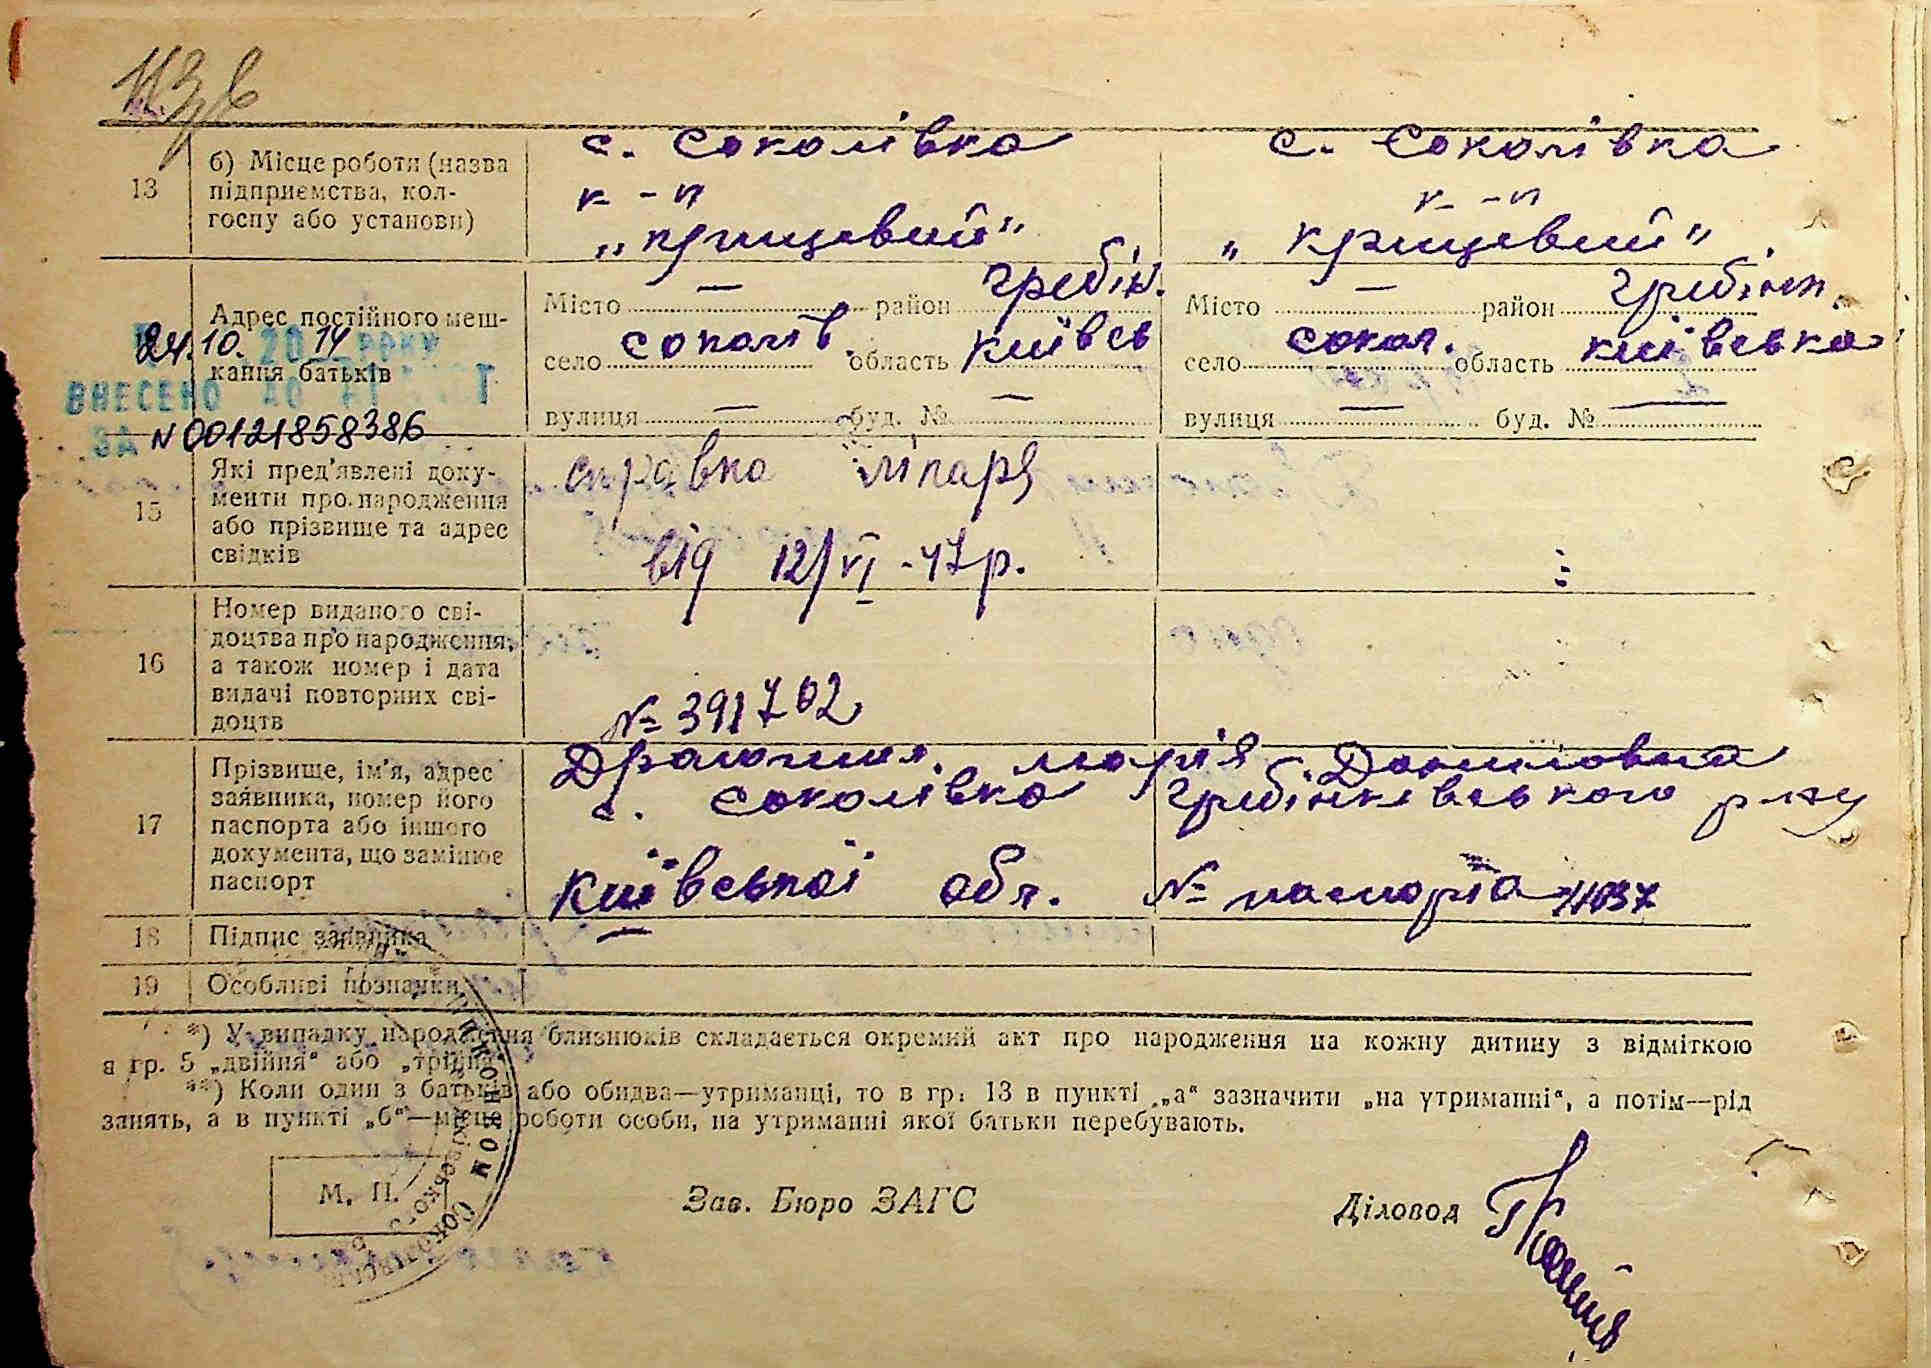 113
13
б) Місце роботи (назва
підприємства, кол-
госпу або установи)
с. Соколівка
к-п
"Крицевий"
с. Соколівка
к-п
"Крицевий"
Адрес постійного меш-
кання батьків
Місто — район Гребін.
село Соколів. область Київсь
вулиця — буд. № —
Місто — район Гребінк.
село Сокол. область Київська
вулиця — буд. № —
24.10. 2014 року
ВНЕСЕНО ДО
ЗА N 00121858386
15
Які пред'явлені доку-
менти про народження
або прізвище та адрес
свідків
справка лікаря
від 12/VI-47р.
16
Номер виданого сві-
доцтва про народження,
а також номер і дата
видачі повторних сві-
доцтв
№ 391702
17
Прізвище, ім'я, адрес
заявника, номер його
паспорта або іншого
документа, що замінює
паспорт
Марія Данилівна
с. Соколівка Гребінківського р-ну
Київської обл. № паспорта
18
Підпис заявника
19
Особливі позначки
*) У випадку народження близнюків складається окремий акт про народження на кожну дитину з відміткою
в гр. 5 „двійня“ або „трійня“
**) Коли один з батьків або обидва—утриманці, то в гр. 13 в пункті „а“ зазначити „на утриманні“, а потім—рід
занять, а в пункті „б“—місце роботи особи, на утриманні якої батьки перебувають.
М. П.
Зав. Бюро ЗАГС
Діловод